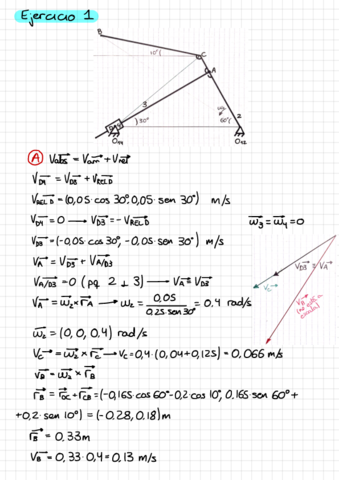 Ejercicio 1
B
10°
C
A
3
ω₂
30°
60°
2
O₁₄
O₁₂
A Vabs = Varr + Vrel
VD4 = VD3 + VREL D
VREL D = (0,05·cos 30°, 0,05·sen 30°) m/s
VD4 = 0 → VD3 = -VREL D
ω3 = ω4 = 0
VD3 = (-0,05 cos 30°, -0,05 sen 30°) m/s
VA = VD3 + VA/D3
VD3 = VA
VC
VA/D3 = 0 (pq 2 ⊥ 3) → VA = VD3
VA = ω2 × rA → ω2 = 0,05 / 0,25·sen 30° = 0,4 rad/s
VB
ω2 = (0, 0, 0.4) rad/s
VC = ω2 × rC → VC = 0,4·(0,04+0,125) = 0,066 m/s
VB = ω2 × rB
rB = rOC + rCB = (-0,165 cos 60° - 0,2 cos 10°, 0,165 sen 60° +
+0,2·sen 10°) = (-0.28, 0.18) m
rB = 0,33 m
VB = 0,33·0,4 = 0,13 m/s